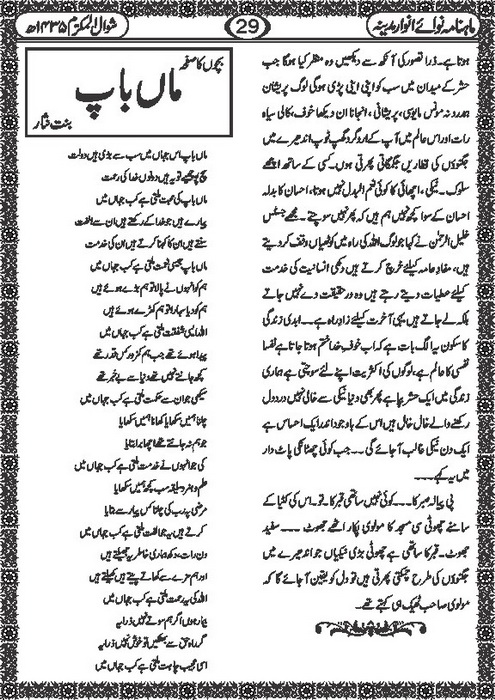 ماہنامہ نوائے انوارِ مدینہ
29
شوال المکرم ۱۴۳۵ھ
ہوتا ہے۔ ذرا تصور کی آنکھ سے دیکھیں وہ منظر کیا ہوگا جب
حشر کے میدان میں سب کو اپنی اپنی پڑی ہوگی لوگ پریشان
ہمدرد نہ مونس مایوسی، پریشانی، انجانا ان دیکھا خوف، کالی سیاہ
رات اور اس عالم میں آپ کے ارد گرد گھپ ٹوپ اندھیرے میں
جگنوؤں کی قطاریں جگمگاتی پھرتی ہوں۔ کسی کے ساتھ اچھے
سلوک۔ نیکی، اچھائی کا کوئی نعم البدل نہیں ہوتا، احسان کا بدلہ
احسان کے سوا کچھ نہیں ہم ہیں کہ پھر نہیں سوچتے۔ مجھے جسٹس
خلیل الرحمٰن نے کہا جو لوگ اللہ کی راہ میں کوٹھیاں وقف کر دیتے
ہیں، مفاد عامہ کیلئے خرچ کرتے ہیں دکھی انسانیت کی خدمت
کیلئے عطیات دیتے رہتے ہیں وہ در حقیقت دے نہیں جاتے
بلکہ لے جاتے ہیں یہی آخرت کیلئے زادِ راہ ہے۔۔ ابدی زندگی
کا سکون یہ الگ بات ہے کہ اب خوفِ خدا ختم ہوتا جاتا ہے نفسا
نفسی کا عالم ہے، لوگوں کی اکثریت اپنے لئے سوچتی ہے ہماری
زندگی میں ایک حشر بپا ہے پھر بھی دنیا نیکی سے خالی نہیں درد دل
رکھنے والے خال خال ہیں اس کے باوجود اندر ایک احساس ہے
ایک دن نیکی غالب آ جائے گی۔۔ جب کوئی چھٹانکی پاٹ دار
میں یہ کہے۔۔۔
پی پیالہ صبر کا۔۔۔ کوئی نہیں ساتھی قبر کا۔ تو۔ اس کی کٹیا کے
سامنے چھوٹی سی مسجد کا مولوی پکار اٹھے جھوٹ۔۔۔ سفید
جھوٹ۔ قبر کا ساتھی ہے چھوٹی بڑی نیکیاں جو اندھیرے میں
جگنوؤں کی طرح چمکتی پھرتی ہیں تو دل کو یقین آ جائے گا کہ
مولوی صاحب ٹھیک ہی کہتے تھے۔
بچوں کا صفحہ
ماں باپ
بنت نثار
ماں باپ اس جہاں میں سب سے بڑی ہیں دولت
سچ پوچھیے تو یہ ہیں دونوں خدا کی رحمت
ماں باپ کی محبت ملتی ہے کب جہاں میں
پیارے ہیں جو خدا کے رکھتے ہیں ان سے الفت
سنتے ہیں ان کا کہنا کرتے ہیں ان کی خدمت
ماں باپ جیسی نعمت ملتی ہے کب جہاں میں
ہم کو انہوں نے پالا تو ہم بڑے ہوئے ہیں
ہم کو دیا سہارا تو ہم کھڑے ہوئے ہیں
اللہ ایسی شفقت ملتی ہے کب جہاں میں
پیدا ہوئے تھے جب ہم کمزور کس قدر تھے
کچھ جانتے نہیں تھے دنیا سے بے خبر تھے
سیکھی جو ان سے حکمت ملتی ہے کب جہاں میں
چلنا ہمیں سکھایا کھانا ہمیں سکھایا
جو ہم نہ جانتے تھے اچھا برا بتایا
کی جو انہوں نے خدمت ملتی ہے کب جہاں میں
علم و ہنر و سلیقہ سب کچھ ہمیں سکھایا
مرضی پہ رب کی چلنا کس پیار سے بتایا
کرتے ہیں یہ جو الفت ملتی ہے کب جہاں میں
دن رات، دکھ ہماری خاطر یہ جھیلتے ہیں
اور ہم مزے سے کھاتے پیتے ہیں کھیلتے ہیں
اللہ کی یہ رحمت ملتی ہے کب جہاں میں
بیمار ہوں اگر ہم سوتے نہیں ذرا یہ
گر راہ حق سے بھٹکیں تو خوش نہیں ذرا یہ
اسی عجیب چاہت ملتی ہے کب جہاں میں